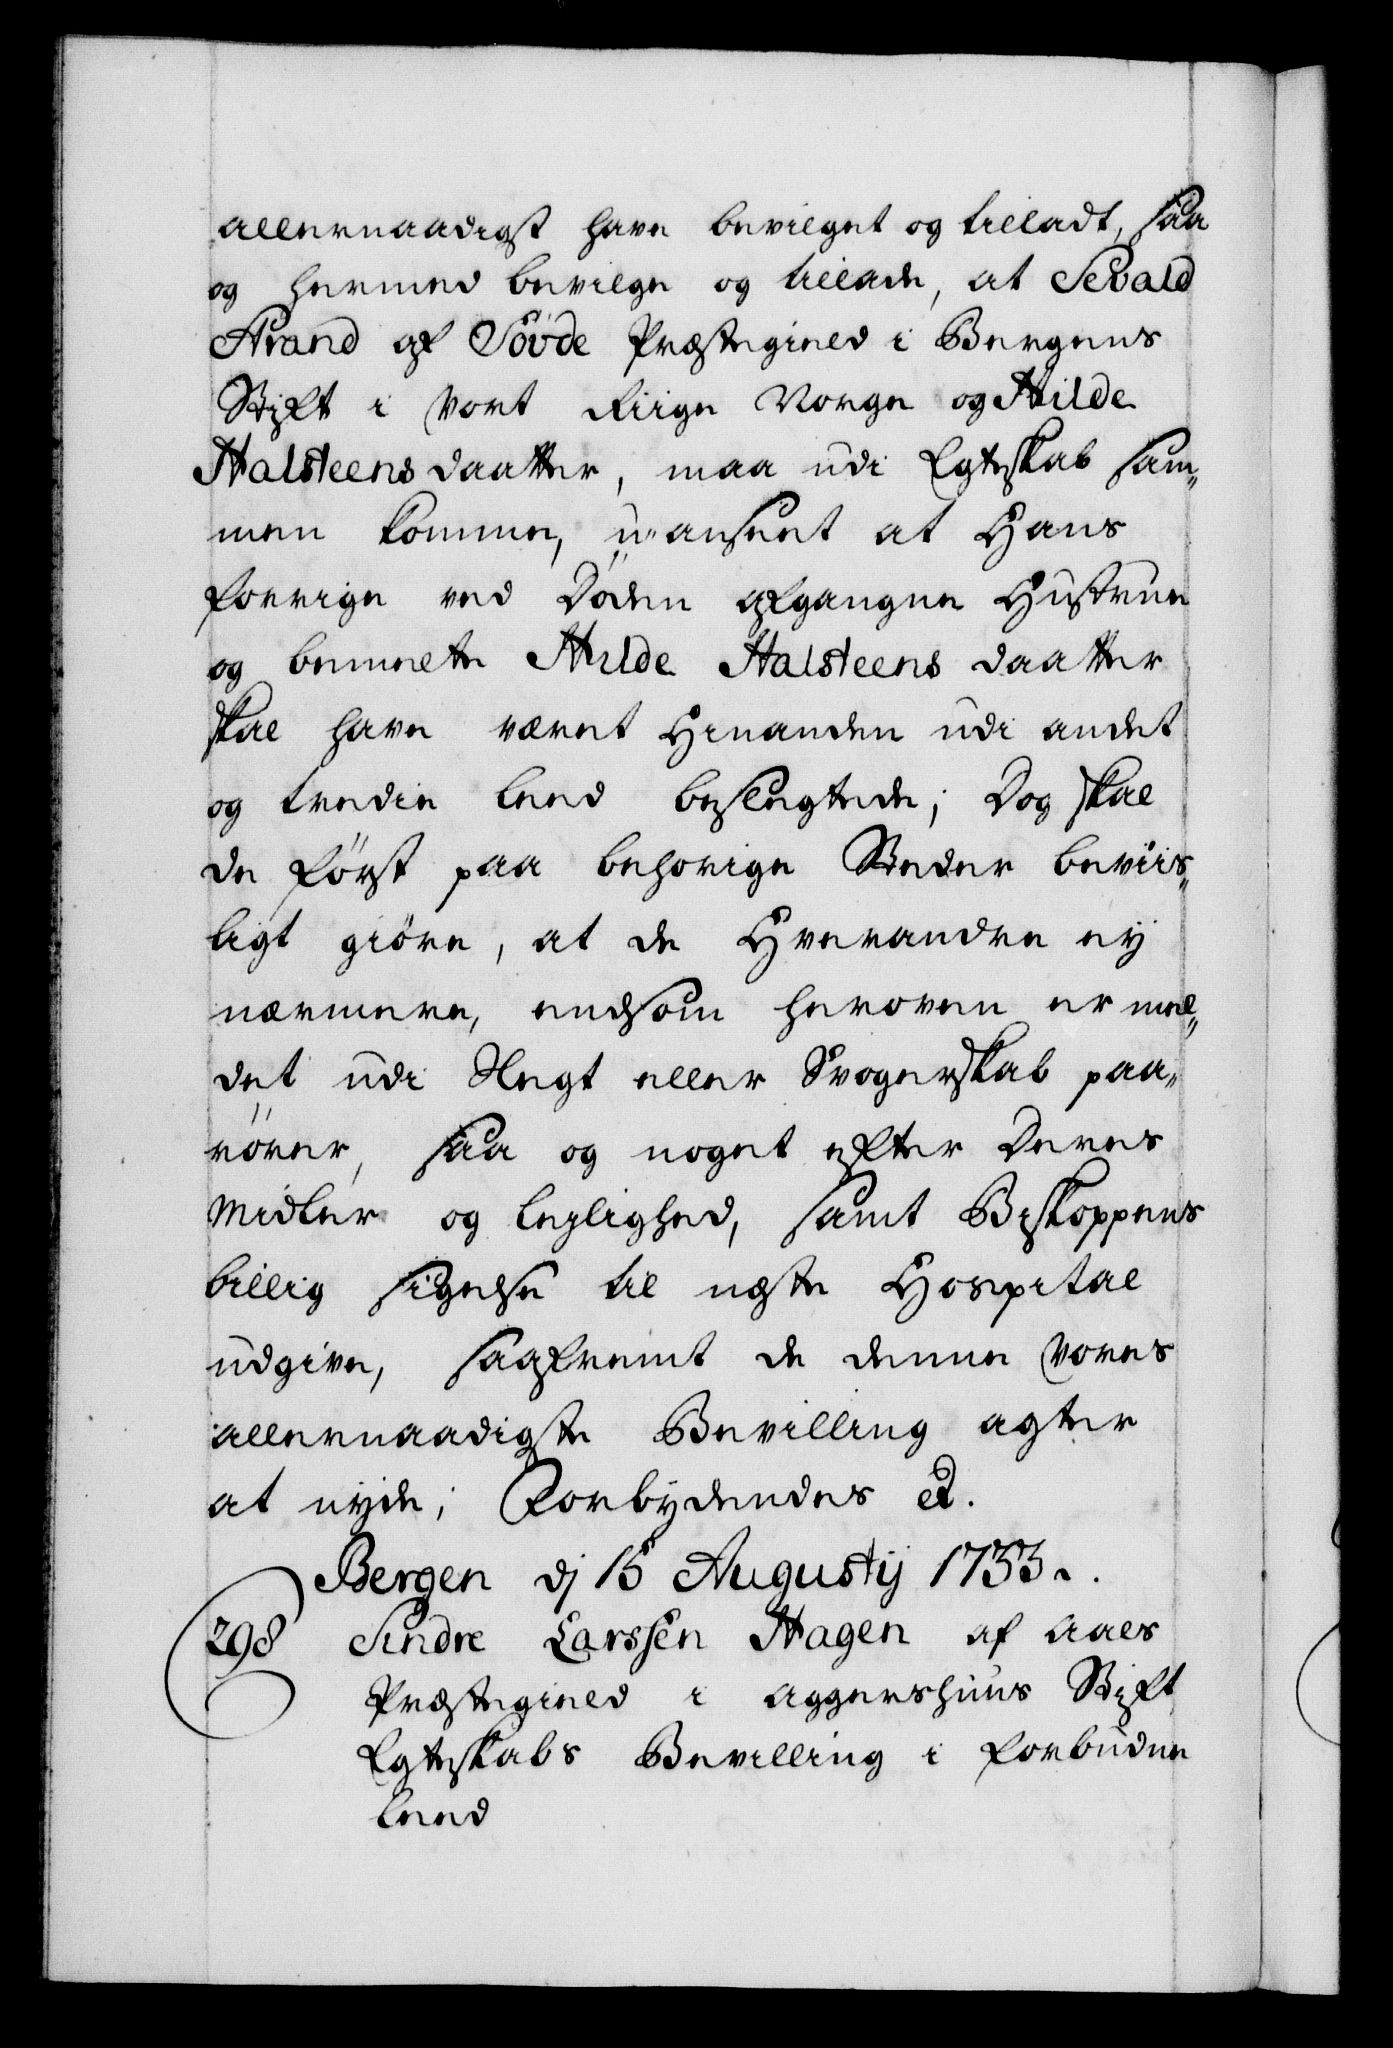 allernaadigst have bevilget og tilladt, saa
og hermed bevilge og tillade, at Sevald
Strand af Sövde Præstegield i Bergens
Stift i vort Riige Norge og Hilde
Halsteens daatter, maa udi Egteskab sam„
men komme, u-anseet at Hans
forrige ved Døden afgangne Hustrue
og bemeelte Hilde Halsteens daatter
skal have været Hinanden udi andet
og tredie leed beslegtede; Dog skal
de först paa behörige Steder beviis„
ligt giöre, at de Hverandre ey
nærmere, endsom heroven er mel„
det udi Slegt eller Svogerskab paa„
rörer, saa og noget efter Deres
Midler og leylighed, samt Biskoppens
billig sigelse til næste Hospital
udgive, saafremt de denne Vores
allernaadigste Bevilling agter
at nyde; Forbydendes etc.
Bergen dj 15 Augustij 1733.
298 Sindre Larssen Hagen af Aaes
Præstegield i Aggershuus Stift
Egteskabs Bevilling i forbudne
leed